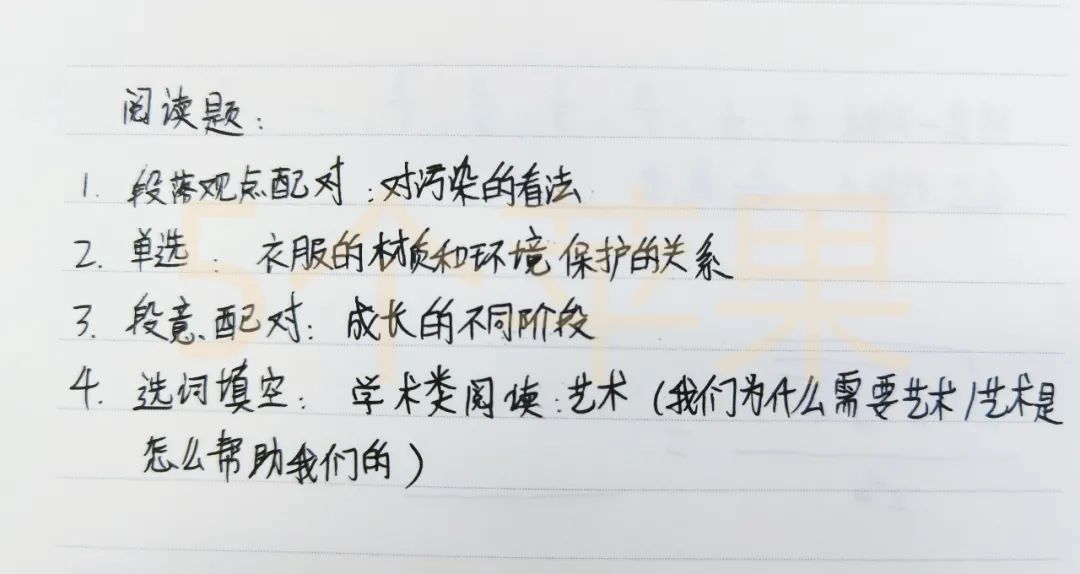 阅读题:
1. 段落观点配对:对污染的看法
2. 单选: 衣服的材质和环境保护的关系
3. 段意配对: 成长的不同阶段
4. 选词填空: 学术类阅读:艺术(我们为什么需要艺术/艺术是
怎么帮助我们的)
5个苹果